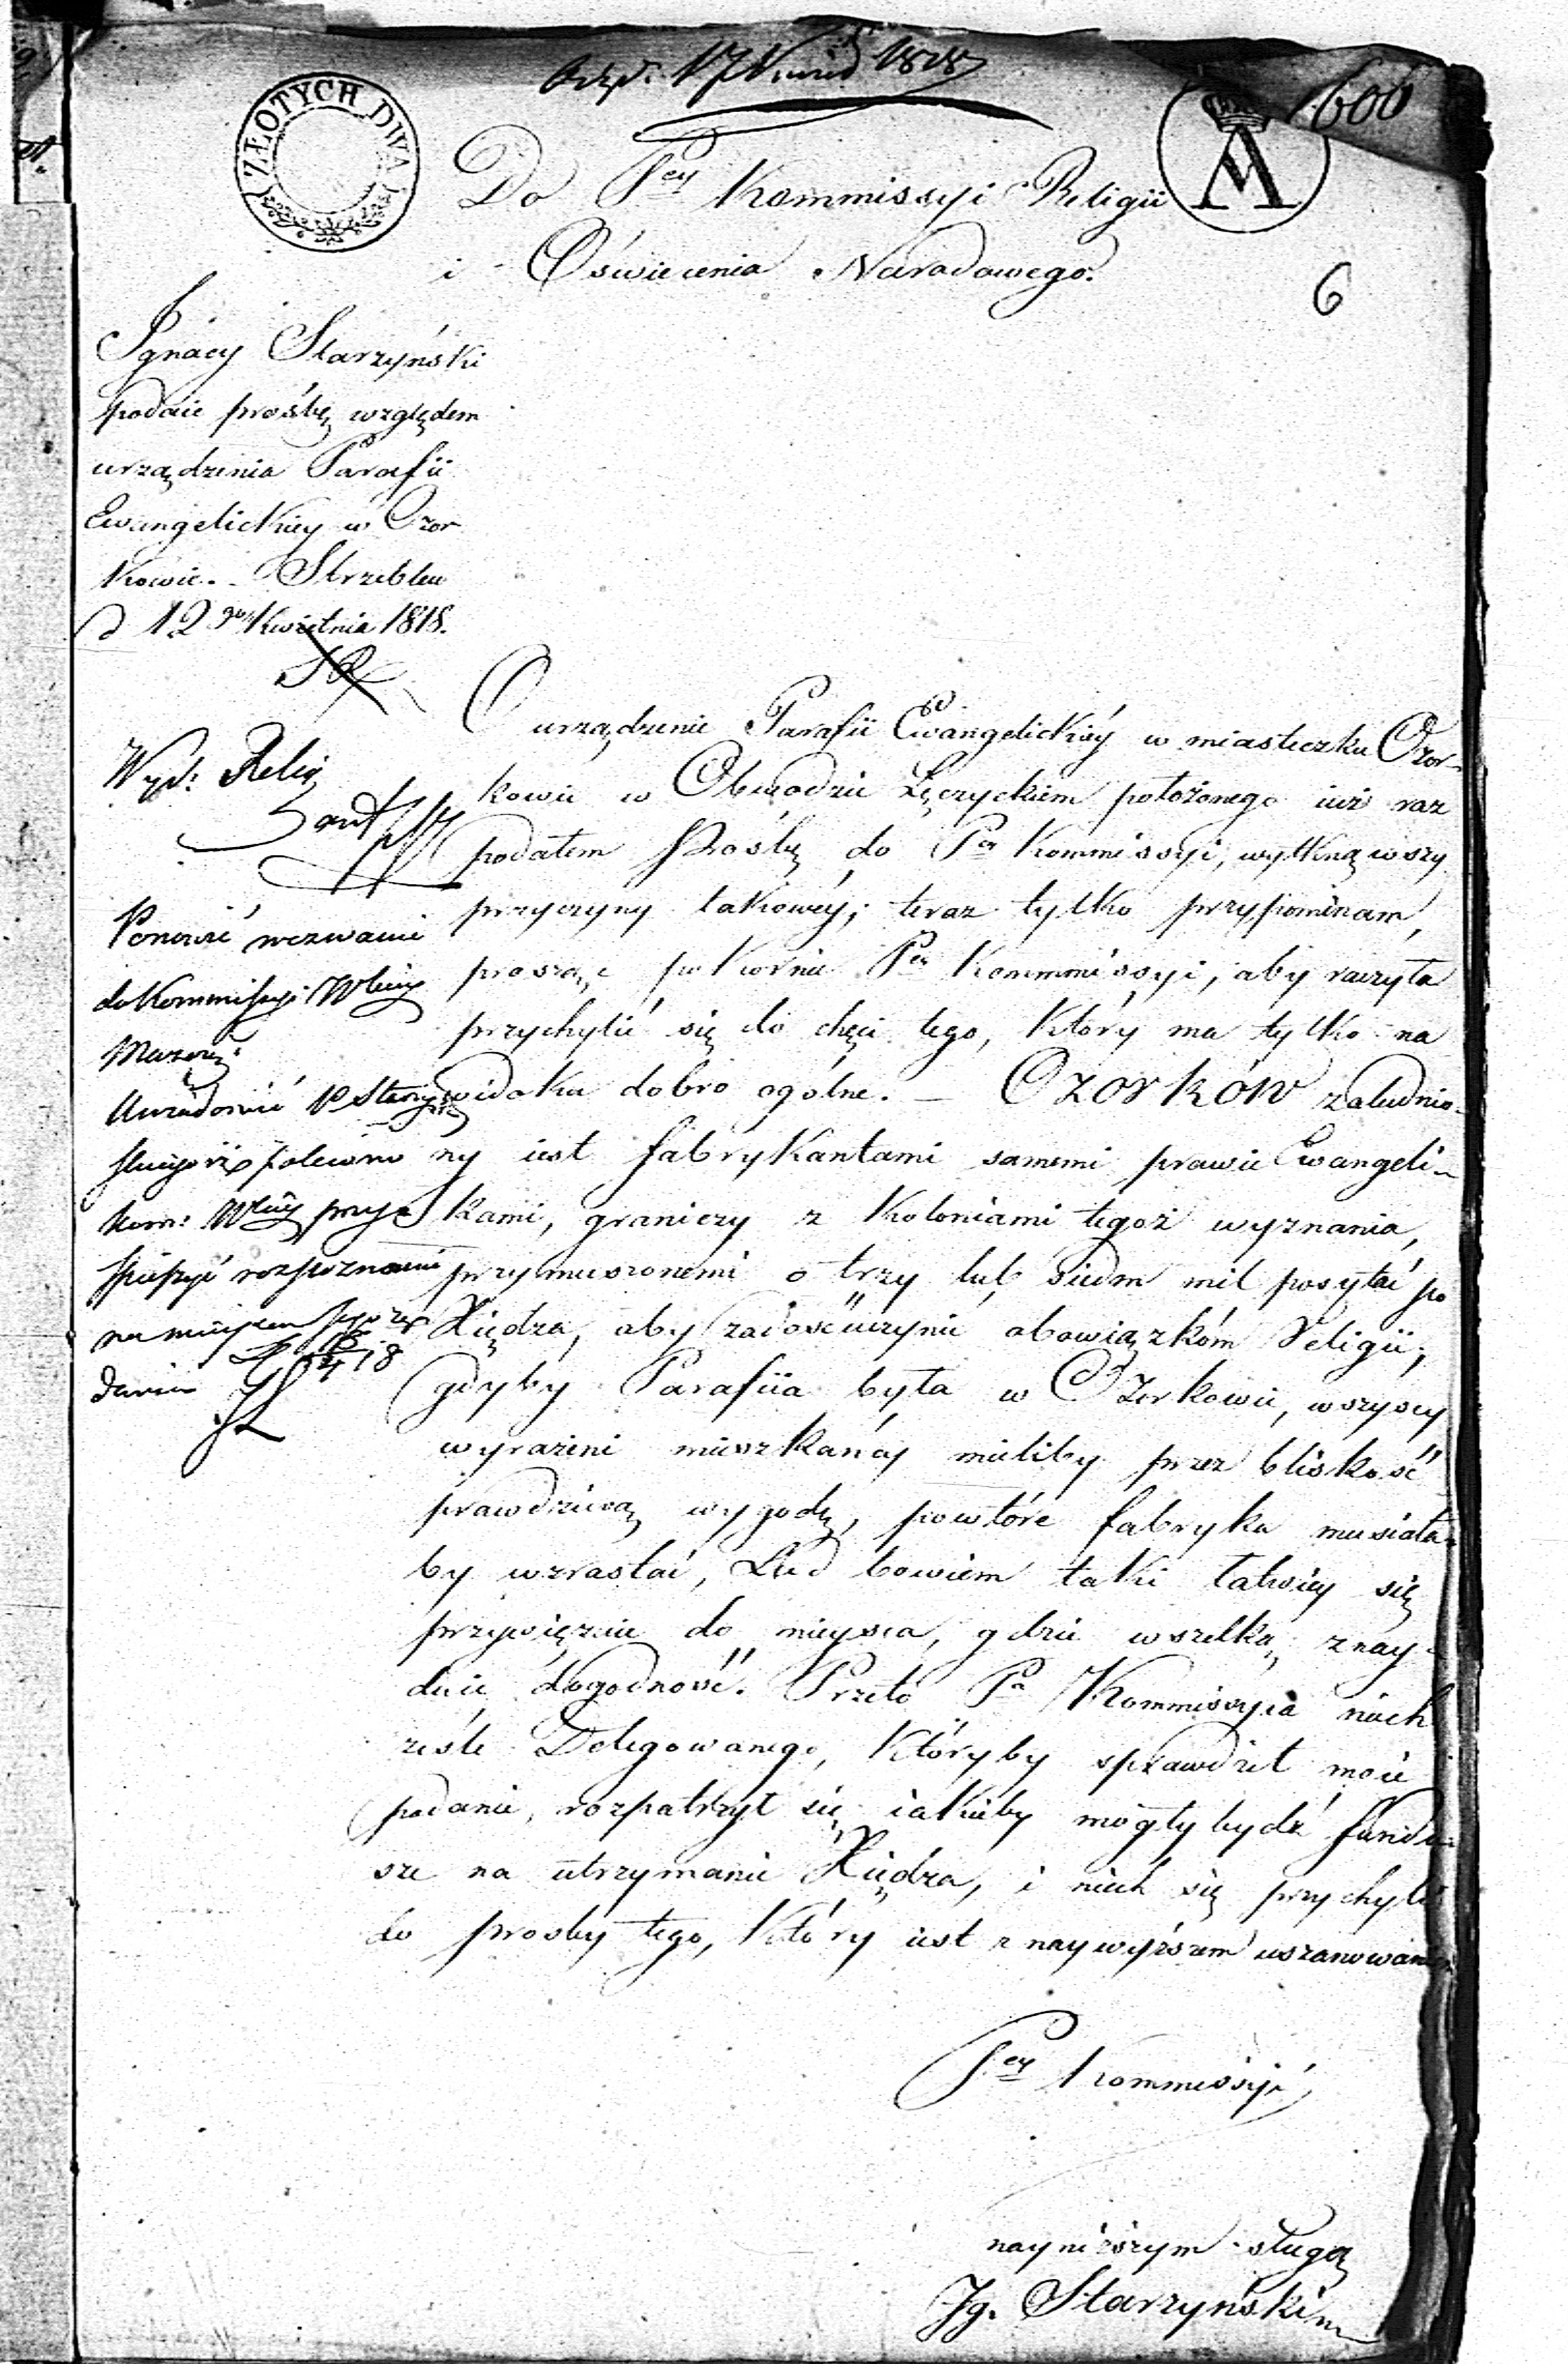 17 Kwiet 1818
ZŁOTYCH DWA
A
1606
Do Pey Kommissyi Religii
i Oświecenia Narodowego.
6
Ignacy Starzyński
podaie prośbę względem
urządzenia Parafii
Ewangelickiey w Ozor
kowie. Strzeblew
d 12go Kwietnia 1818.
Wyd: Relig
Ponowić wezwanie
do Kommissyi Wdzkiey
Mazow:
Uwiadomić P. Starzyń
polecono
Kom: Wdzkiey przy
spieszyć rozpoznanie
na mieyscu jego po
dania
18
O urządzenie Parafii Ewangelickiéy w miasteczku Ozor-
kowie w Obwodzie Łęczyckiem położonego iuż raz
podałem Prośbę do Pey Kommissyi, wytknąwszy
przyczyny takowéy; teraz tylko przypominam,
prosząc pokornie Pey Kommissyi, aby raczyła
przychylić się do chęci tego, który ma tylko na
widoku dobro ogólne. — Ozorków zaludnio-
ny iest fabrykantami samemi prawie Ewangeli-
kami, graniczy z koloniami tegoż wyznania,
przymuszonemi o trzy lub siedm mil posyłać po
Xiędza, aby zadosćuczynić obowiązkóm Religii;
gdyby Parafiia była w Ozorkowie, wszyscy
wyrażeni mieszkańcy mieliby przez bliskość
prawdziwą wygodę, powtóre fabryka musiała-
by wzrastać, Lud bowiem taki łatwiey się
przywięzuie do mieysca, gdzie wszelką znay-
duie dogodność. Przeto Pa Kommissyia niech
ześle Delegowanego, któryby sprawdził moie
podanie, rozpatrzył się iakieby mogły bydź fundu-
sze na utrzymanie Xiędza, i niech się przychyli
do prosby tego, który iest z naywyższem uszanowaniem
Pey Kommissyi
nayniższym sługą
Ig. Starzyńskim